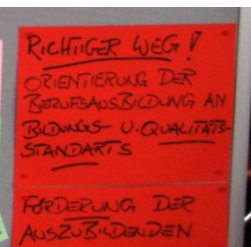 RICHTIGER WEG!
ORIENTIERUNG DER
BERUFSAUSBILDUNG AN
BILDUNGS- U. QUALITÄTS-
STANDARTS
FÖRDERUNG DER
AUSZUBILDENDEN